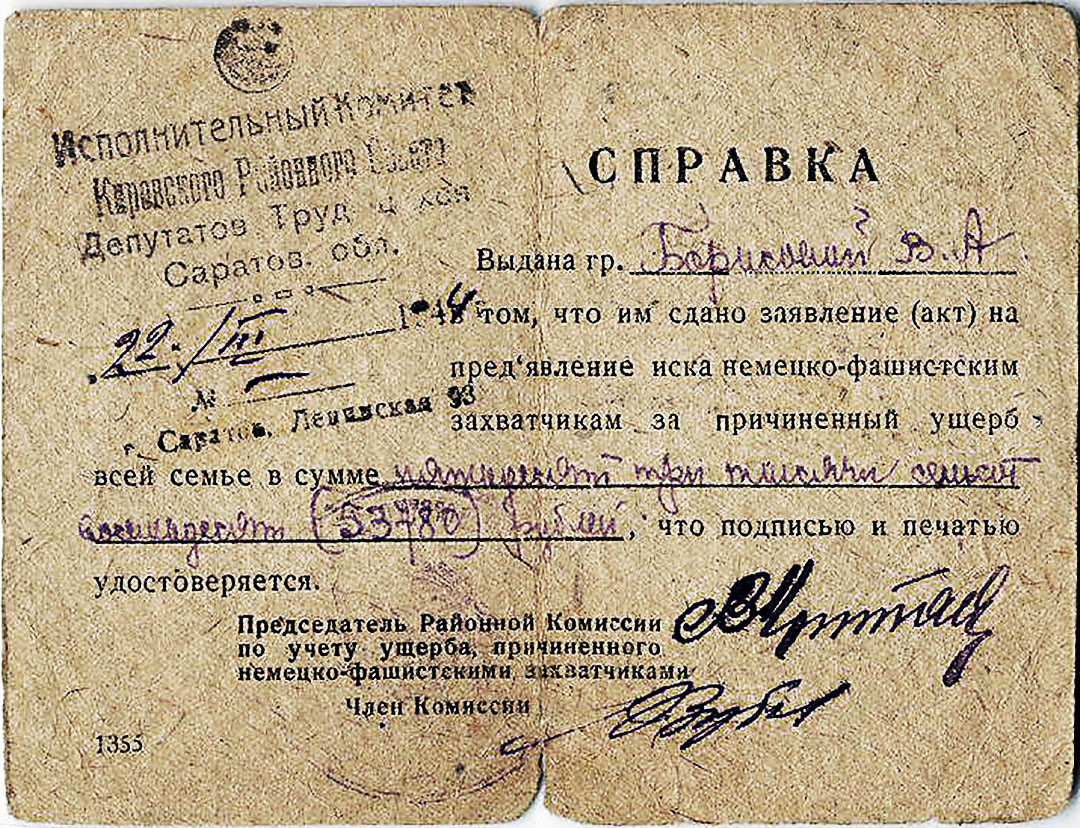 Исполнительный Комитет
Кировского Районного Совета
Депутатов Труд
Саратов. обл.
22. / III 1944
№ —
г. Саратов, Ленинская 93
СПРАВКА
Выдана гр. Борисовой В. А
в том, что им сдано заявление (акт) на
пред‘явление иска немецко-фашистским
захватчикам за причиненный ущерб
всей семье в сумме пятьдесят три тысячи семьсот
восемьдесят (53780) рублей, что подписью и печатью
удостоверяется.
Председатель Районной Комиссии
по учету ущерба, причиненного
немецко-фашистскими захватчиками
Член Комиссии
1355